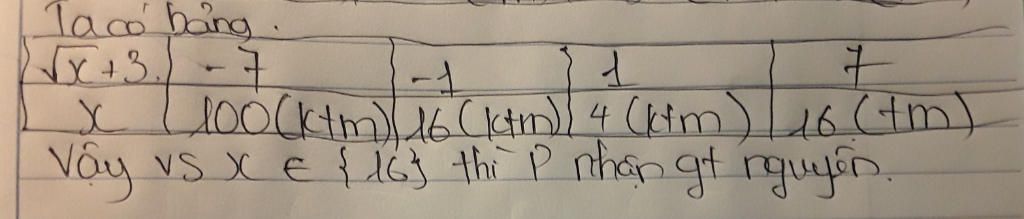 Ta có bảng.
√x+3. -7 -1 1 7
x 100 (ktm) 16 (ktm) 4 (ktm) 16 (tm)
Vậy vs x ∈ {16} thì P nhận gt nguyên.